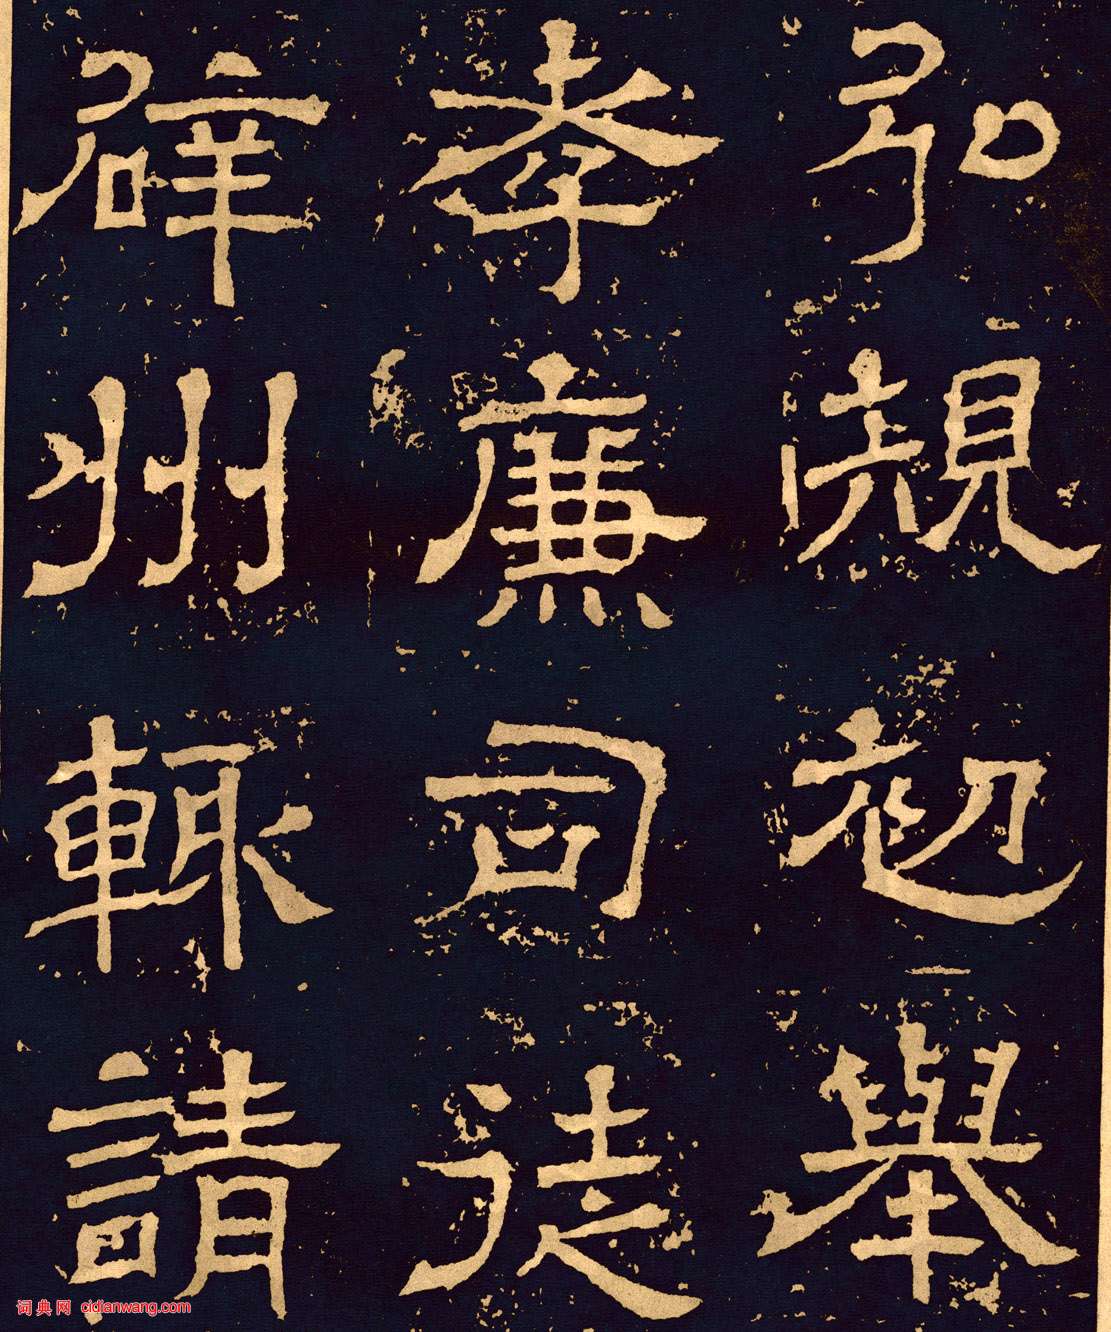 弘規初舉
孝廉司徒
辟州輒請
词典网 cidianwang.com